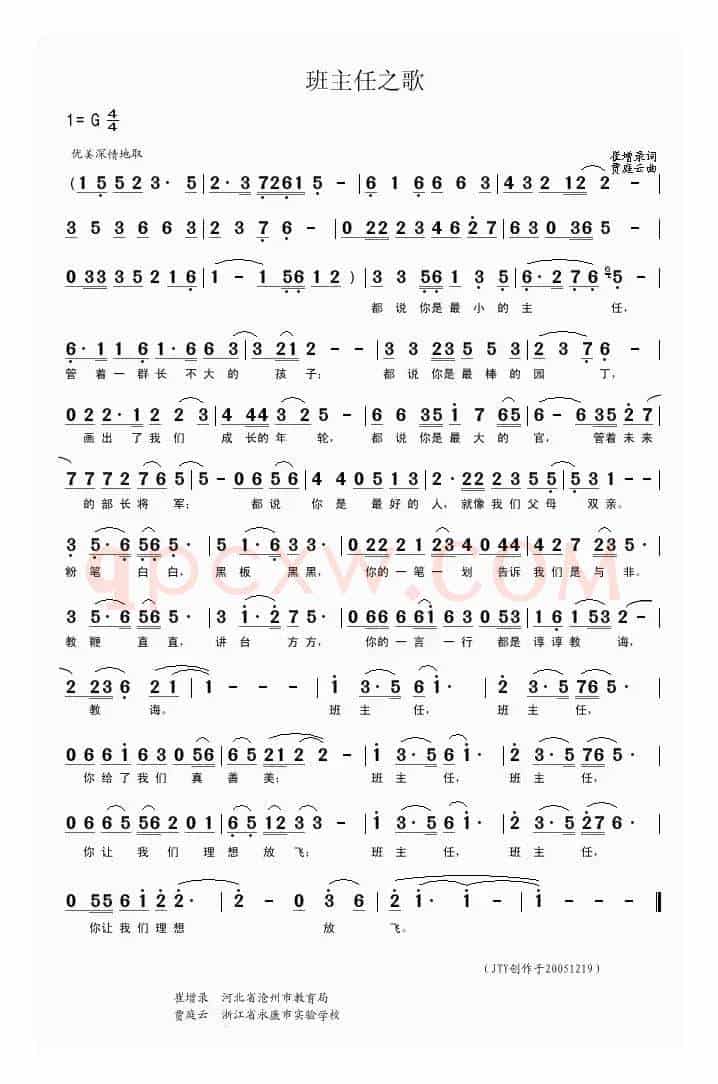 班主任之歌
1= G 4/4
优美深情地取
崔增录词
贾庭云曲
(1 5 5 2 3· 5 | 2· 3 7261 5 - | 6 1 6 6 3 | 4 3 2 12 2 -
3 5 3 6 6 3 | 2 3 7 6 - | 0 22 2 3 4 6 2 | 6 3 0 0 36 5 -
0 33 3 5 2 1 6 | 1 - 1 56 1 2 ) | 3 3 56 1 3 5 | 6· 2 7 6 6 5 - |
都说你是最小的主任,
6· 1 1 6 1· 6 6 3 | 3 21 2 - | 3 3 23 5 5 3 | 2 7 3 7 - |
管着一群长不大的孩子;都说你是最棒的园丁,
0 2 2· 1 2 2 3 | 4 44 3 2 - | 6 6 35 1 7 65 | 6 - 6 35 3 2 |
画出了我们成长的年轮,都说你是最大的官,管着未来
7 7 7 2 7 6 5 | 5 - 0 6 5 6 | 4 4 0 5 1 3 | 2· 22 2 3 5 5 | 5 3 1 - |
的部长将军;都说你是最好的人,就像我们父母双亲。
3 5· 6 56 5· | 5 1· 6 3 3 · | 0 22 2 1 23 4 0 | 0 44 2 2 23 5· |
粉笔白白,黑板黑黑,你的一笔一划告诉我们是与非。
3 5· 6 56 5· | 3 1· 2 7 5· | 0 66 6 61 6 3 | 0 53 1 6 1 53 5· |
教鞭直直,讲台方方,你的一言一行都是谆谆教诲,
2 23 6 2 1 | 1 - - - | 1 3· 5 6 1· | 2 3· 5 76 5· |
教诲。班主任,班主任,
0 6 6 1 6 3 0 56 | 6 5 21 2 2 - | 1 3· 5 6 1· | 2 3· 5 76 5· |
你给了我们真善美;班主任,班主任,
0 6 6 5 56 2 0 1 | 6 5 12 3 3 - | 1 3· 5 6 1· | 2 3· 5 27 6· |
你让我们理想放飞;班主任,班主任,
0 55 6 1 2 2· | 2 - 0 3 6 | 1 - - - | 1 - - - ‖
你让我们理想放飞。
(JTY创作于20051219)
崔增录 河北省沧州市教育局
贾庭云 浙江省永康市实验学校
qpcxw.COM